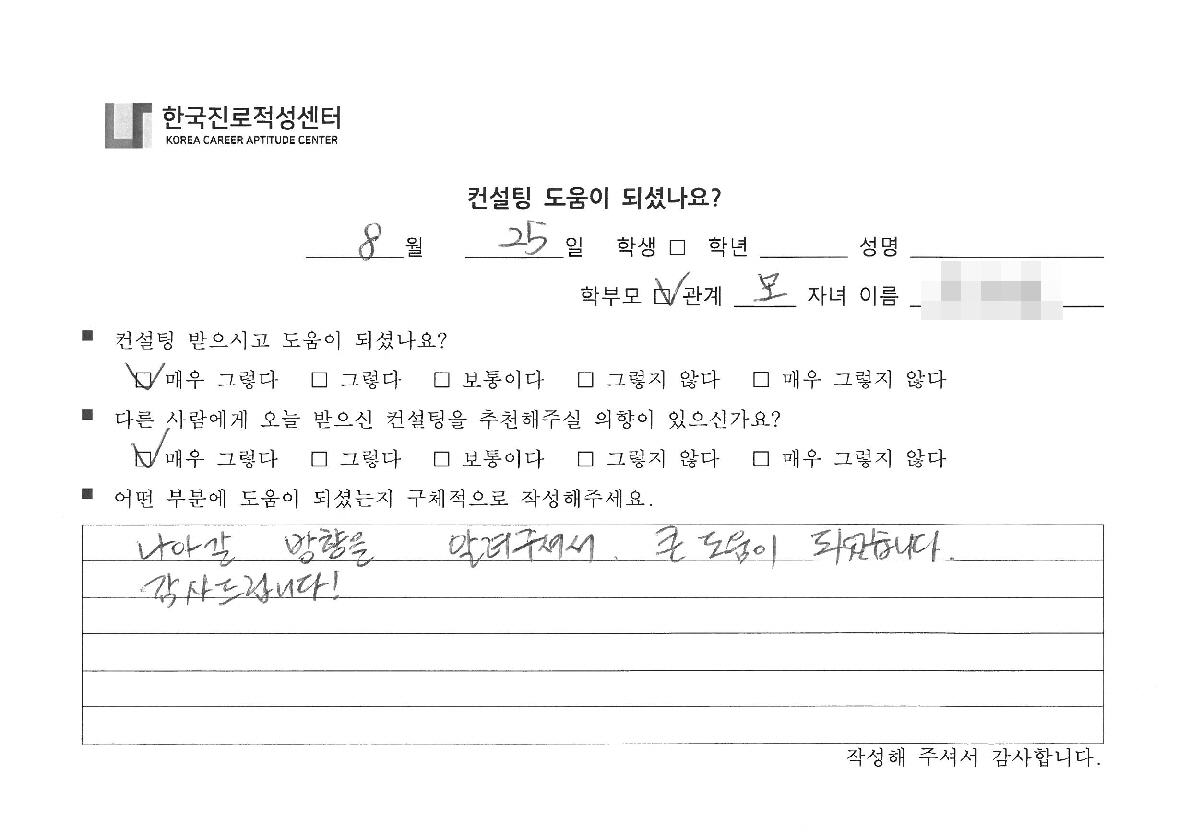 한국진로적성센터
KOREA CAREER APTITUDE CENTER
컨설팅 도움이 되셨나요?
8 월 25 일 학생 □ 학년 성명
학부모 ☑ 관계 모 자녀 이름
■ 컨설팅 받으시고 도움이 되셨나요?
☑ 매우 그렇다 □ 그렇다 □ 보통이다 □ 그렇지 않다 □ 매우 그렇지 않다
■ 다른 사람에게 오늘 받으신 컨설팅을 추천해주실 의향이 있으신가요?
☑ 매우 그렇다 □ 그렇다 □ 보통이다 □ 그렇지 않다 □ 매우 그렇지 않다
■ 어떤 부분에 도움이 되셨는지 구체적으로 작성해주세요.
나아갈 방향을 알려주셔서, 큰 도움이 되었습니다.
감사드립니다!
작성해 주셔서 감사합니다.